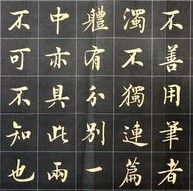 不善用筆者
濁不獨連篇
體有分別一
中亦具此兩
不可不知也